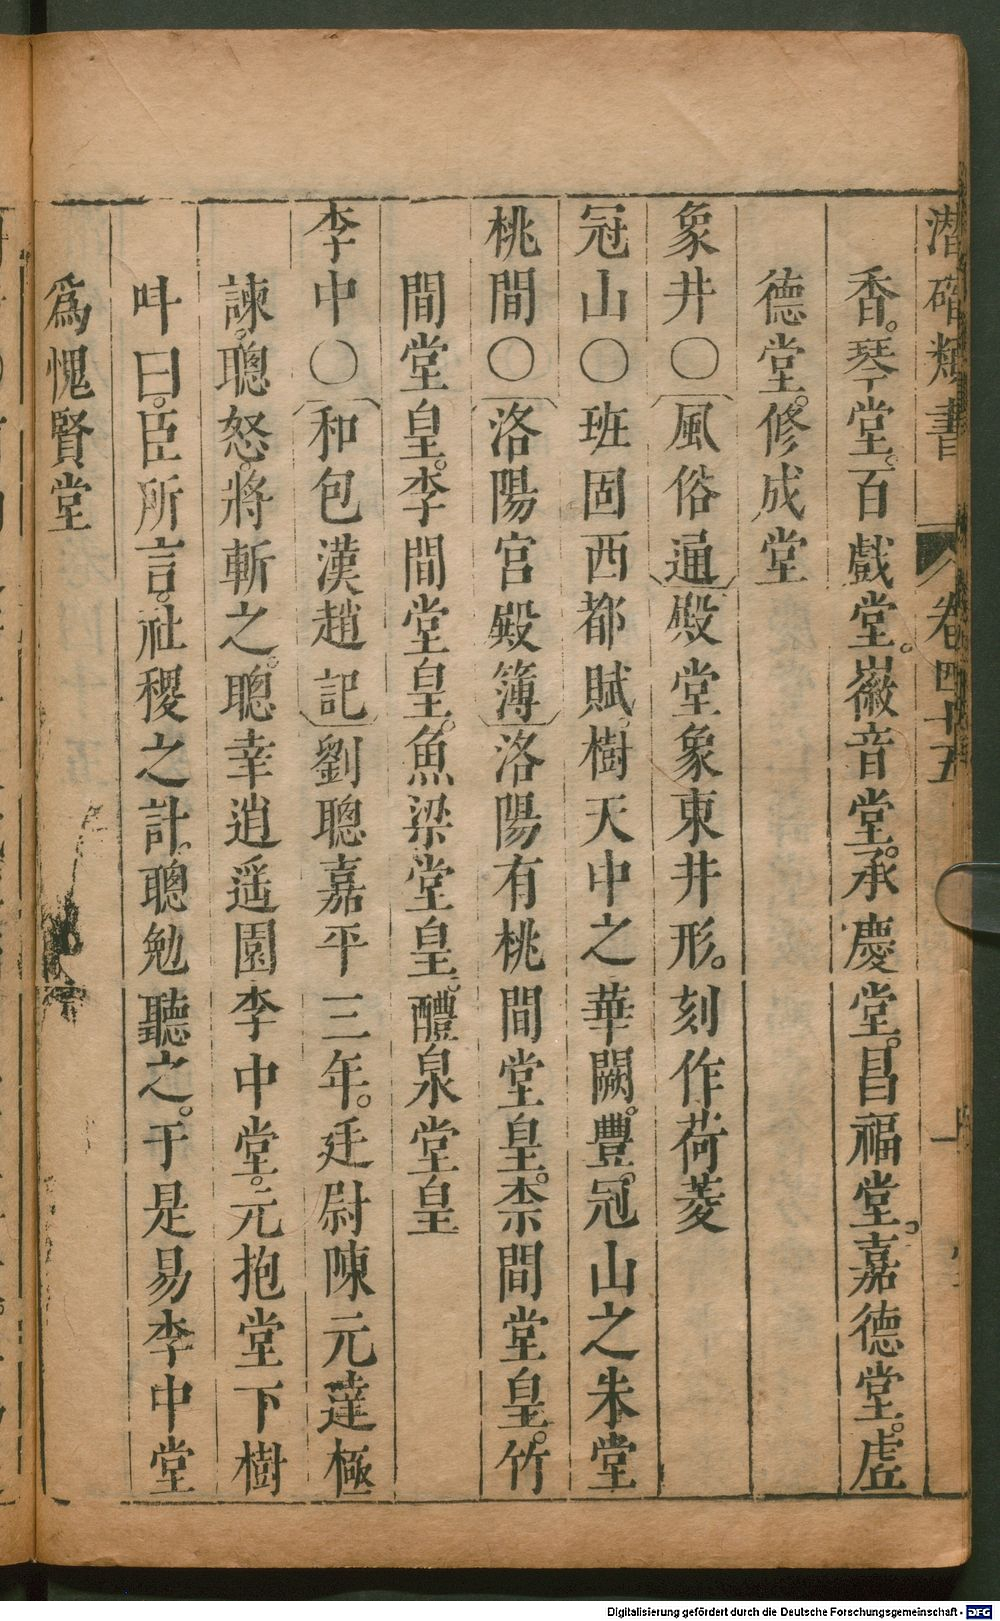 潛確類書 卷四十五
香。琴堂。百戲堂。徽音堂。承慶堂。昌福堂。嘉德堂。虛
德堂。修成堂
象井〇〔風俗通〕殿堂象東井形。刻作荷菱
冠山〇班固西都賦。樹天中之華闕。豐冠山之朱堂
桃間〇〔洛陽宮殿簿〕洛陽有桃間堂皇。柰間堂皇。竹
間堂皇。李間堂皇。魚梁堂皇。醴泉堂皇
李中〇〔和包漢趙記〕劉聰嘉平三年。廷尉陳元達極
諫。聰怒。將斬之。聰幸逍遥園李中堂。元抱堂下樹
呌曰。臣所言。社稷之計。聰勉聽之。于是易李中堂
爲愧賢堂
Digitalisierung gefördert durch die Deutsche Forschungsgemeinschaft - DFG